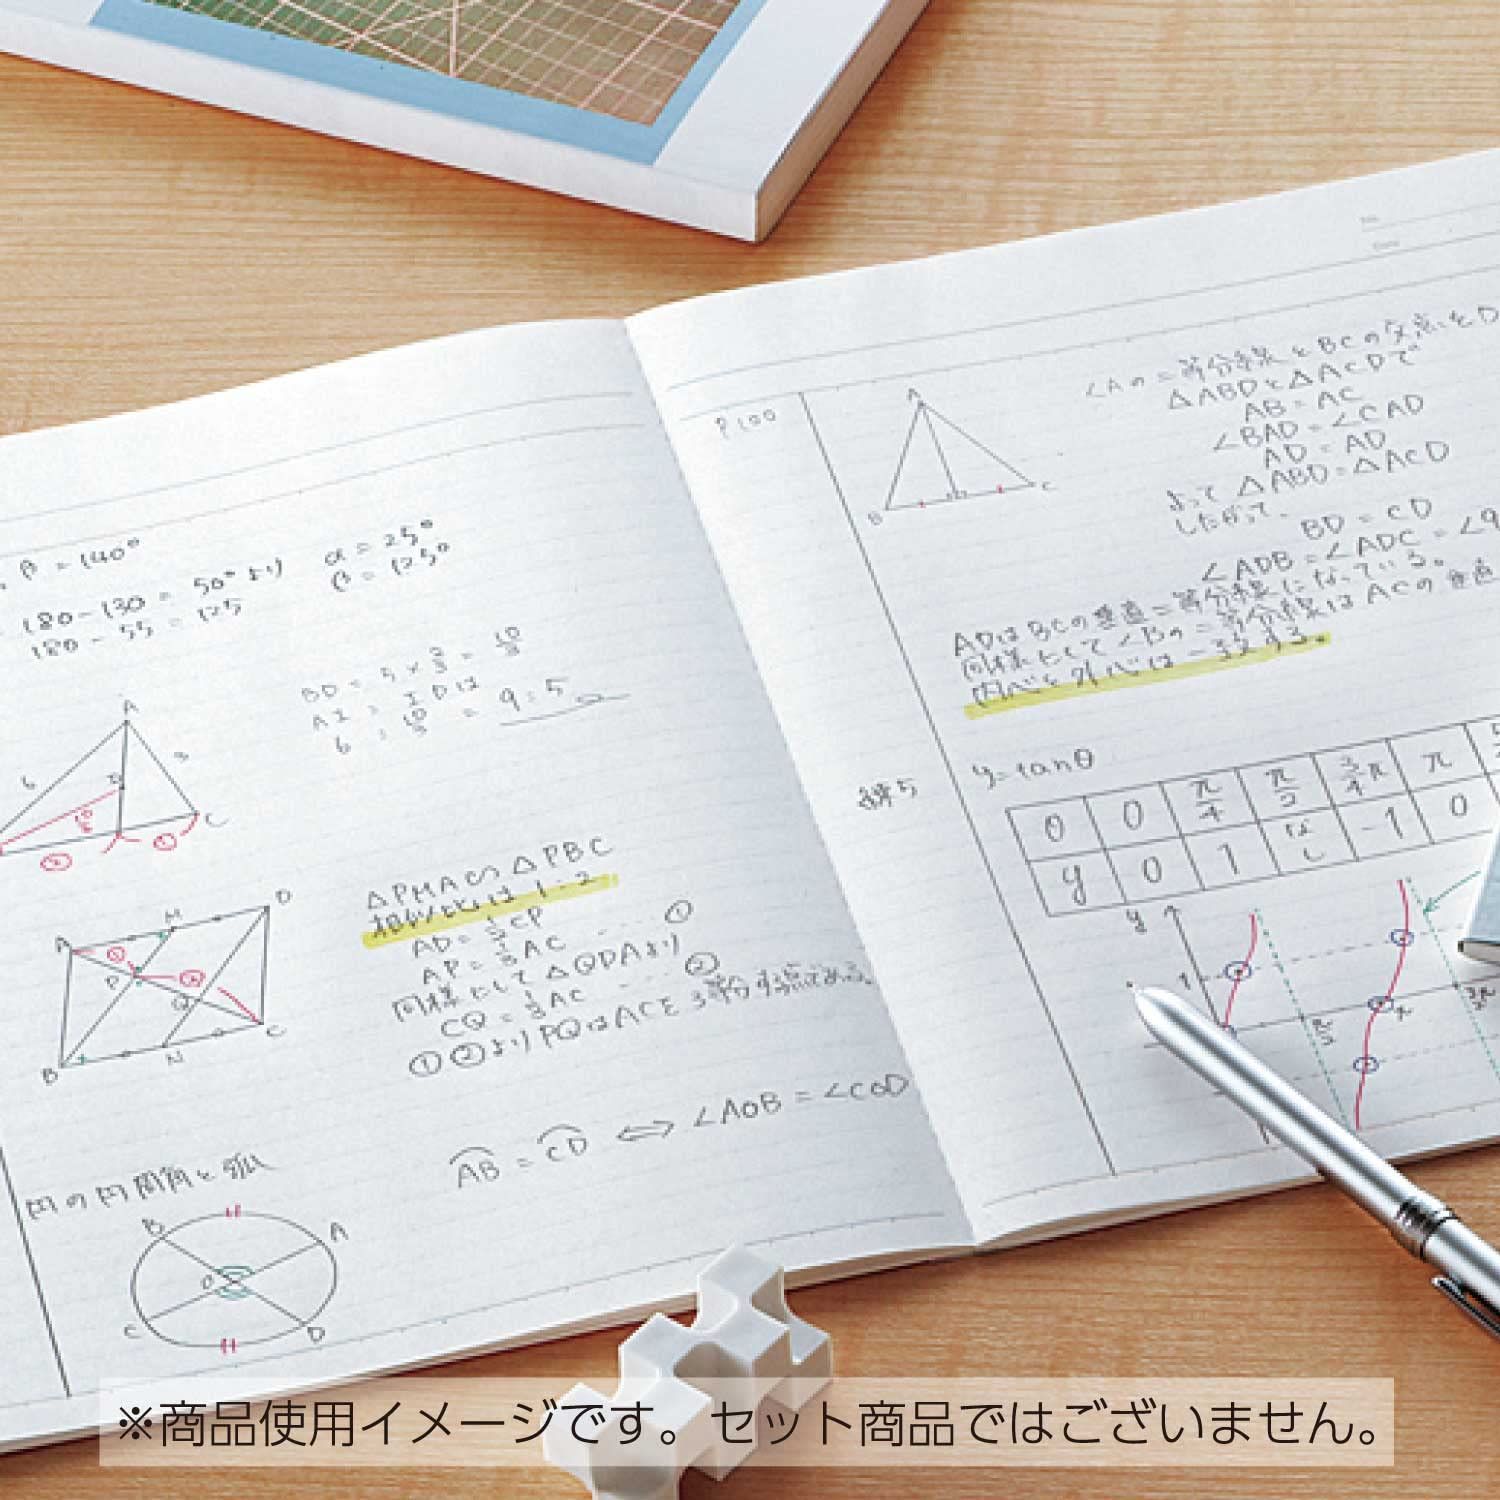 β = 140°
180 - 130 = 50° より
180 - 55 = 125
α = 25°
β = 125°
BD = 5 × 2/3 = 10/3
AI : IDは
6 : 10/3 = 9:5
A
6
3
C
② ①
△PMA∽△PBC
相似比は 1:2
AD = 1/2 CP
AP = 1/3 AC ... ①
同様にして △QDAより
CQ = 1/3 AC ... ②
①②より PQはACを3等分する点である。
A
M
D
P
Q
B
N
C
AB = CD ⟺ ∠AOB = ∠COD
円の円周角と弧
B
A
O
C
D
No.
Date
P100
A
B
C
∠Aの二等分線とBCの交点をD
△ABDと△ACDで
AB = AC
∠BAD = ∠CAD
AD = AD
よって △ABD≡△ACD
したがって、
BD = CD
∠ADB = ∠ADC = ∠9
ADはBCの垂直二等分線になっている。
同様にして ∠Bの二等分線はACの垂直
内心と外心は一致する。
y = tanθ
θ 0 π/4 π/2 3/4π π
y 0 1 なし -1 0
y
1
π/2
π
3/2π
※商品使用イメージです。セット商品ではございません。